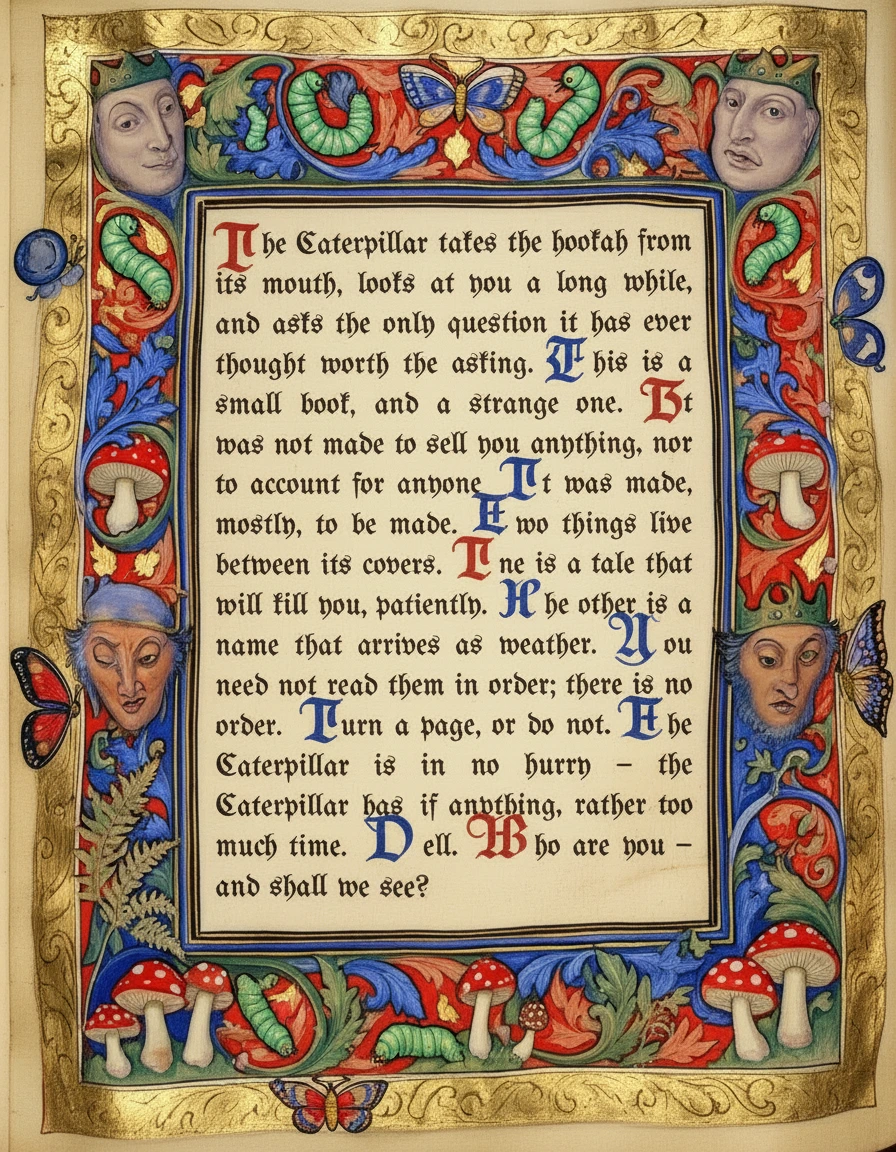 The Caterpillar takes the hookah from
its mouth, looks at you a long while,
and asks the only question it has ever
thought worth the asking. This is a
small book, and a strange one. Bt
was not made to sell you anything, nor
to account for anyone Tt was made,
mostly, to be made. Ewo things live
between its covers. Tne is a tale that
will kill you, patiently. Hhe other is a
name that arrives as weather. You
need not read them in order; there is no
order. Turn a page, or do not. Ehe
Caterpillar is in no hurry – the
Caterpillar has if anything, rather too
much time. Dell. Who are you –
and shall we see?